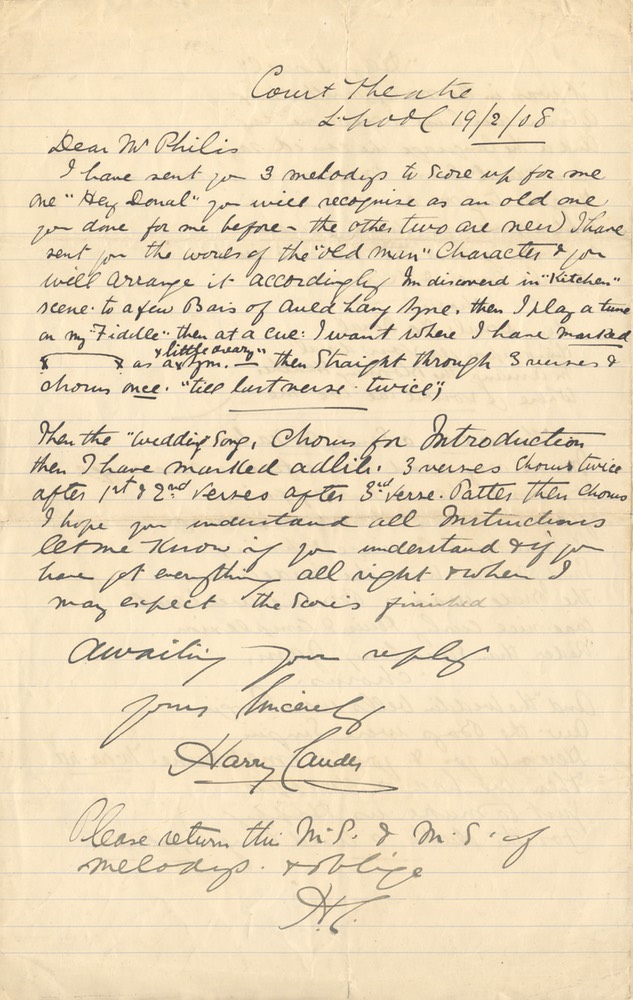 Court Theatre
L'pool 19/2/08
Dear Mr Philis
I have sent you 3 melodys to Score up for me
one "Hey Donal" you will recognise as an old one
you done for me before – the other two are new I have
sent you the words of the "old man" Character & you
will arrange it accordingly Im discoverd in "Kitchen"
scene. to a few Bars of Auld Lang Syne. then I play a tune
on my "Fiddle" then at a cue: I want where I have marked
x x as a "little dreary" Sym. – then Straight through 3 verses &
chorus once. "till last verse twice",
Then the "Wedding Song, Chorus for Introduction
then I have marked adlib. 3 verses Chorus twice
after 1st & 2nd Verses after 3rd Verse. Patter then Chorus
I hope you understand all Instructions
let me Know if you understand & if you
have got everything all right & when I
may expect the Scores finished
Awaiting your reply
yours Sincerely
Harry Lauder
Please return this M.S. & M.S. of
melodys. & oblige
H.L.